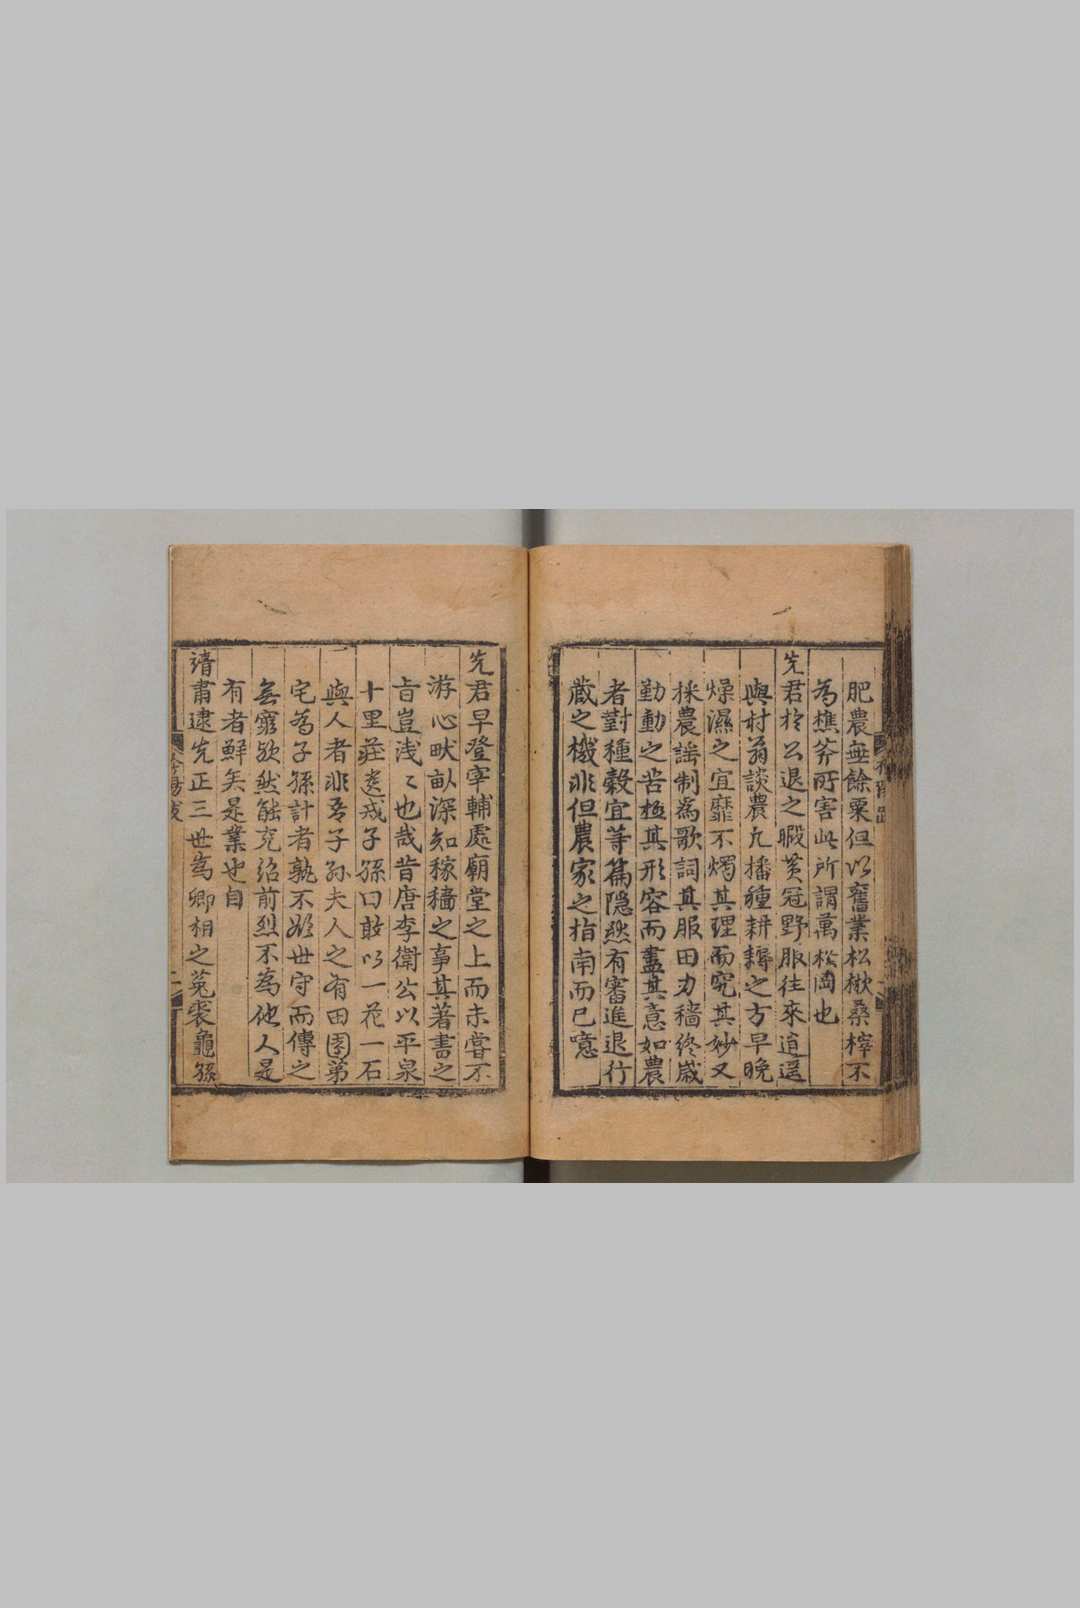 肥農無餘粟但以舊業松楸桑梓不
為樵斧所害此所謂萬松岡也
先君於公退之暇黃冠野服往來逍遥
與村翁談農凡播種耕耨之方早晚
燥濕之宜靡不燭其理而究其妙又
採農謡制為歌詞其服田力穡終歲
勤動之苦極其形容而盡其意如農
者對種穀宜等篇隠然有審進退行
蔵之機非但農家之指南而已噫
先君早登宰輔處廟堂之上而未嘗不
游心畎畝深知稼穡之事其著書之
㫖豈浅〻也哉昔唐李衛公以平泉
十里莊遺戒子孫曰敢以一花一石
與人者非吾子孫夫人之有田園第
宅為子孫計者孰不欲世守而傳之
無窮欤然能克紹前烈不為他人是
有者鮮矣是業也自
靖肅逮先正三世為卿相之菟裘龜孫
衿陽跋
二